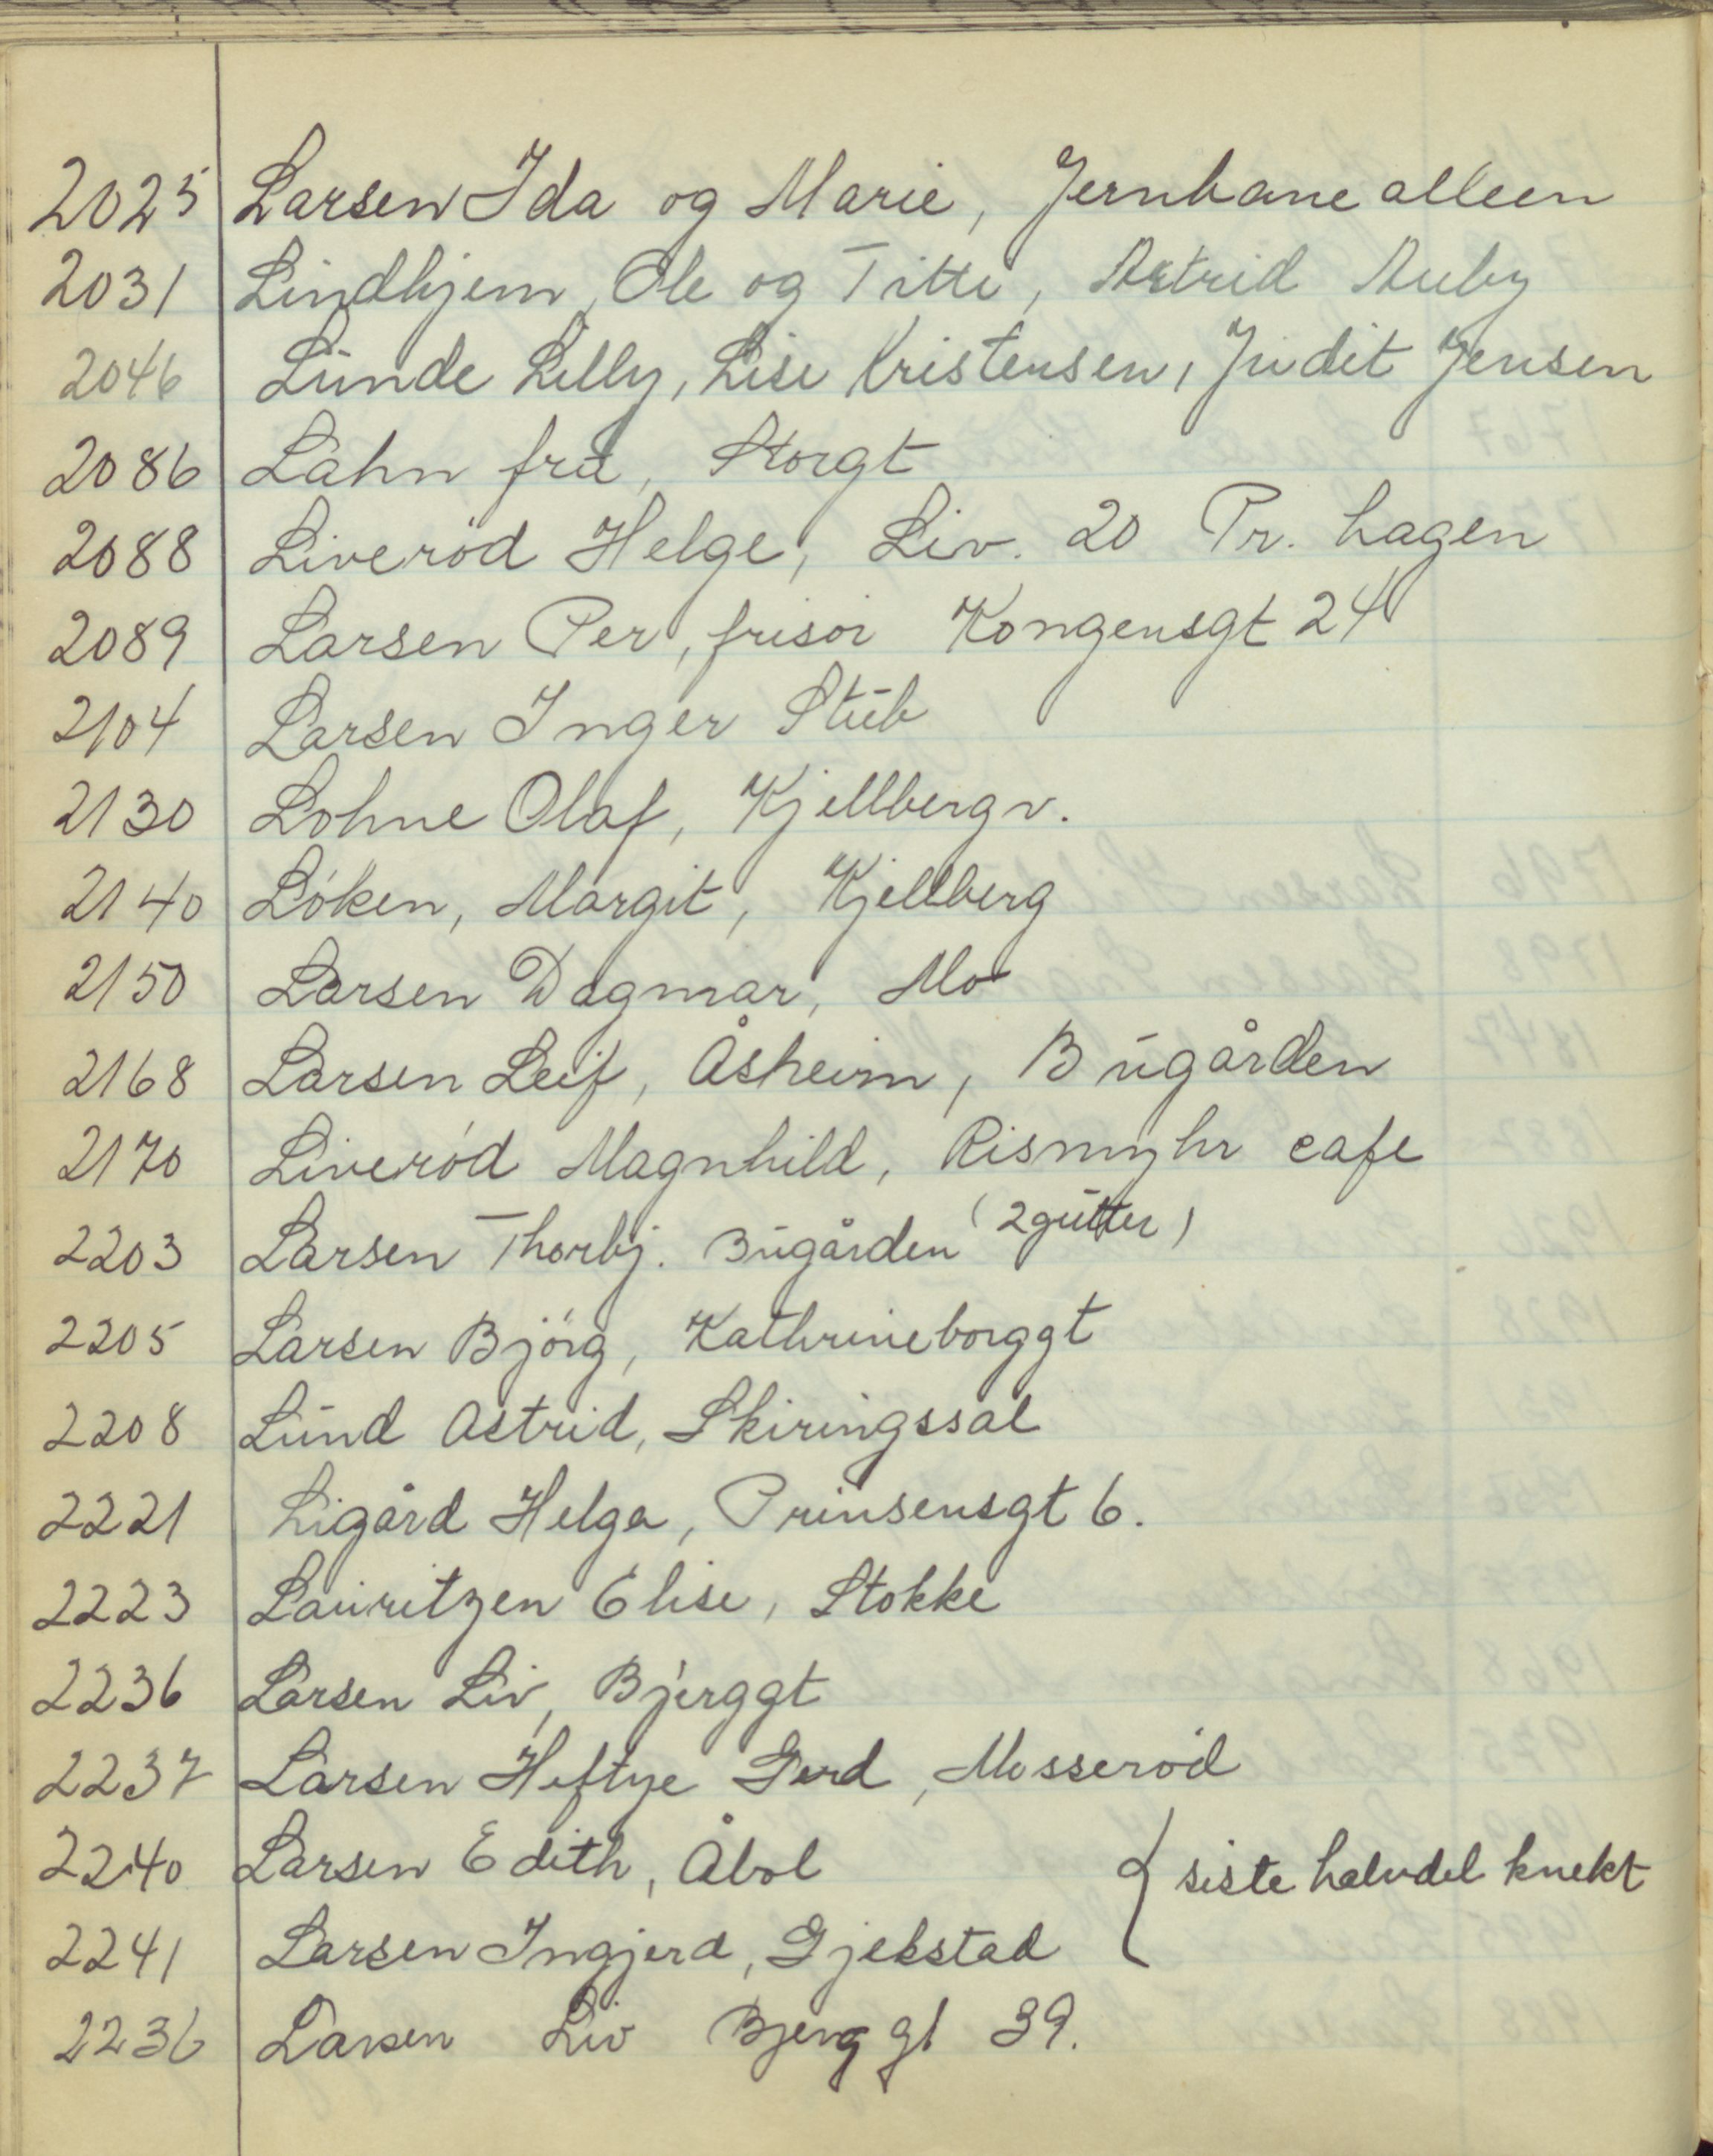 2025 Larsen Ida og Marie, Jernbanealleen
2031 Lindhjem, Ole og Titti, Astrid Auby
2046 Lunde Lilly, Lise Kristensen, Judit Jensen
2086 Lahn fru, Storgt
2088 Liveröd Helge, Liv. 20 Pr. hagen
2089 Larsen Per, frisör Kongensgt 24
2104 Larsen Inger Stub
2130 Lohne Olaf, Kjellbergv.
2140 Löken, Margit, Kjellberg
2150 Larsen Dagmar, Mo
2168 Larsen Leif, Åsheim, Bugården
2170 Liveröd Magnhild, Rismyhr cafe
2203 Larsen Thorbj. Bugården (2gutter)
2205 Larsen Björg, Kathrineborggt
2208 Lund Astrid, Skiringssal
2221 Ligård Helga, Prinsensgt 6.
2223 Lauritzen Elise, Stokke
2236 Larsen Liv, Bjerggt
2237 Larsen Heftye Gerd, Mosseröd
2240 Larsen Edith, Åbol { siste halvdel knekt
2241 Larsen Ingjerd, Gjekstad
2236 Larsen Liv Bjerggt 39.